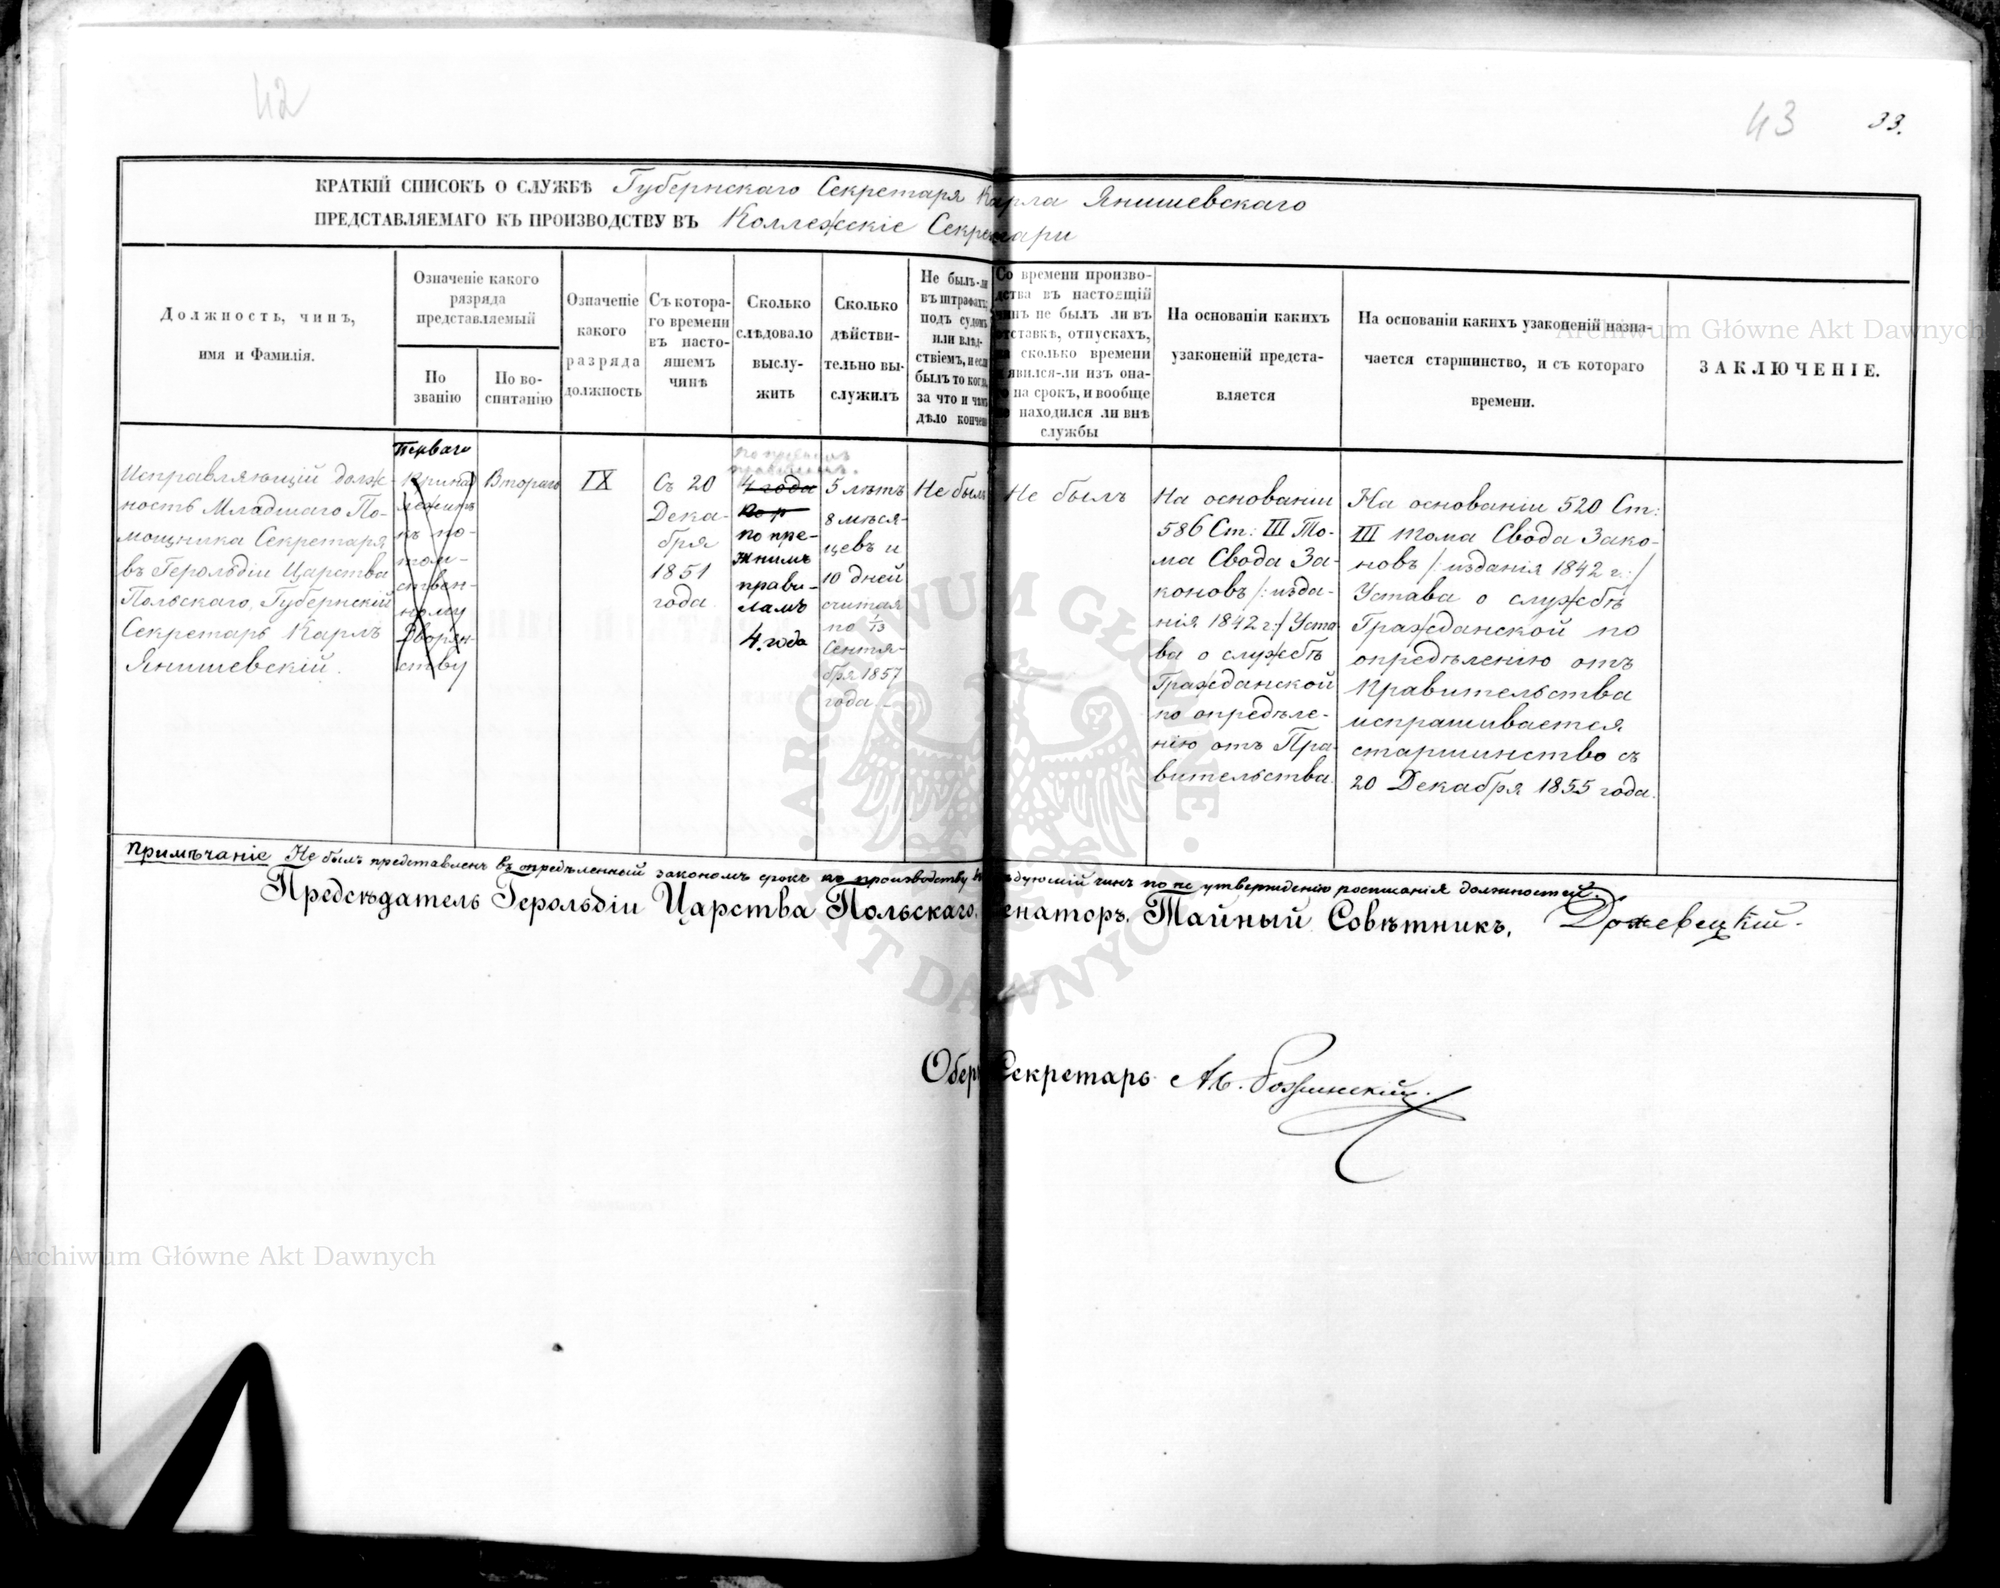 42
43
33.
КРАТКІЙ СПИСОКЪ О СЛУЖБѢ Губернскаго Секретаря Карла Янишевскаго
ПРЕДСТАВЛЯЕМАГО КЪ ПРОИЗВОДСТВУ ВЪ Коллежскіе Секретари
Должность, чинъ,
имя и Фамилія.
Означеніе какого
разряда
представляемый
По
званію
По во-
спитанію
Означеніе
какого
разряда
должность
Съ котора-
го времени
въ насто-
ящемъ
чинѣ
Сколько
слѣдовало
выслу-
жить
Сколько
дѣйстви-
тельно вы-
служилъ
Не былъ-ли
въ штрафахъ,
подъ судомъ
или слѣд-
ствіемъ, и если
былъ то когда,
за что и чѣмъ
дѣло кончено
Со времени произво-
дства въ настоящій
чинъ не былъ ли въ
отставкѣ, отпускахъ,
на сколько времени
и явился-ли изъ она-
го на срокъ, и вообще
не находился ли внѣ
службы
На основаніи какихъ
узаконеній предста-
вляется
На основаніи какихъ узаконеній назна-
чается старшинство, и съ котораго
времени.
ЗАКЛЮЧЕНІЕ.
Исправляющій долж-
ность Младшаго По-
мощника Секретаря
въ Герольдіи Царства
Польскаго, Губернскій
Секретарь Карлъ
Янишевскій.
Перваго
Принад
лежитъ
къ по-
том-
ствен-
ному
Дворян-
ству
Втораго
IX
Съ 20
Дека-
бря
1851
года
4 года
по пре-
жнимъ
прави-
ламъ
4. года
5 лѣтъ
8 мѣся-
цевъ и
10 дней
считая
по 1/13
Сентя-
бря 1857
года
Не былъ
Не былъ
На основаніи
586 Ст: III То-
ма Свода За-
коновъ /: изда-
нія 1842 г:/ Уста
ва о службѣ
Гражданской
по опредѣле-
нію отъ Пра-
вительства.
На основаніи 520 Ст:
III тома Свода Зако-
новъ /: изданія 1842 г.:/
Устава о службѣ
Гражданской по
опредѣленію отъ
Правительства
испрашивается
старшинство съ
20 Декабря 1855 года.
Примѣчаніе Не былъ представленъ въ опредѣленный закономъ срокъ къ производству въ слѣдующій чинъ по не утвержденію росписанія должностей.
Предсѣдатель Герольдіи Царства Польскаго, Сенаторъ, Тайный Совѣтникъ,
Оберъ Секретарь
Archiwum Główne Akt Dawnych
Archiwum Główne Akt Dawnych
ARCHIWUM GŁÓWNE · AKT DAWNYCH ·